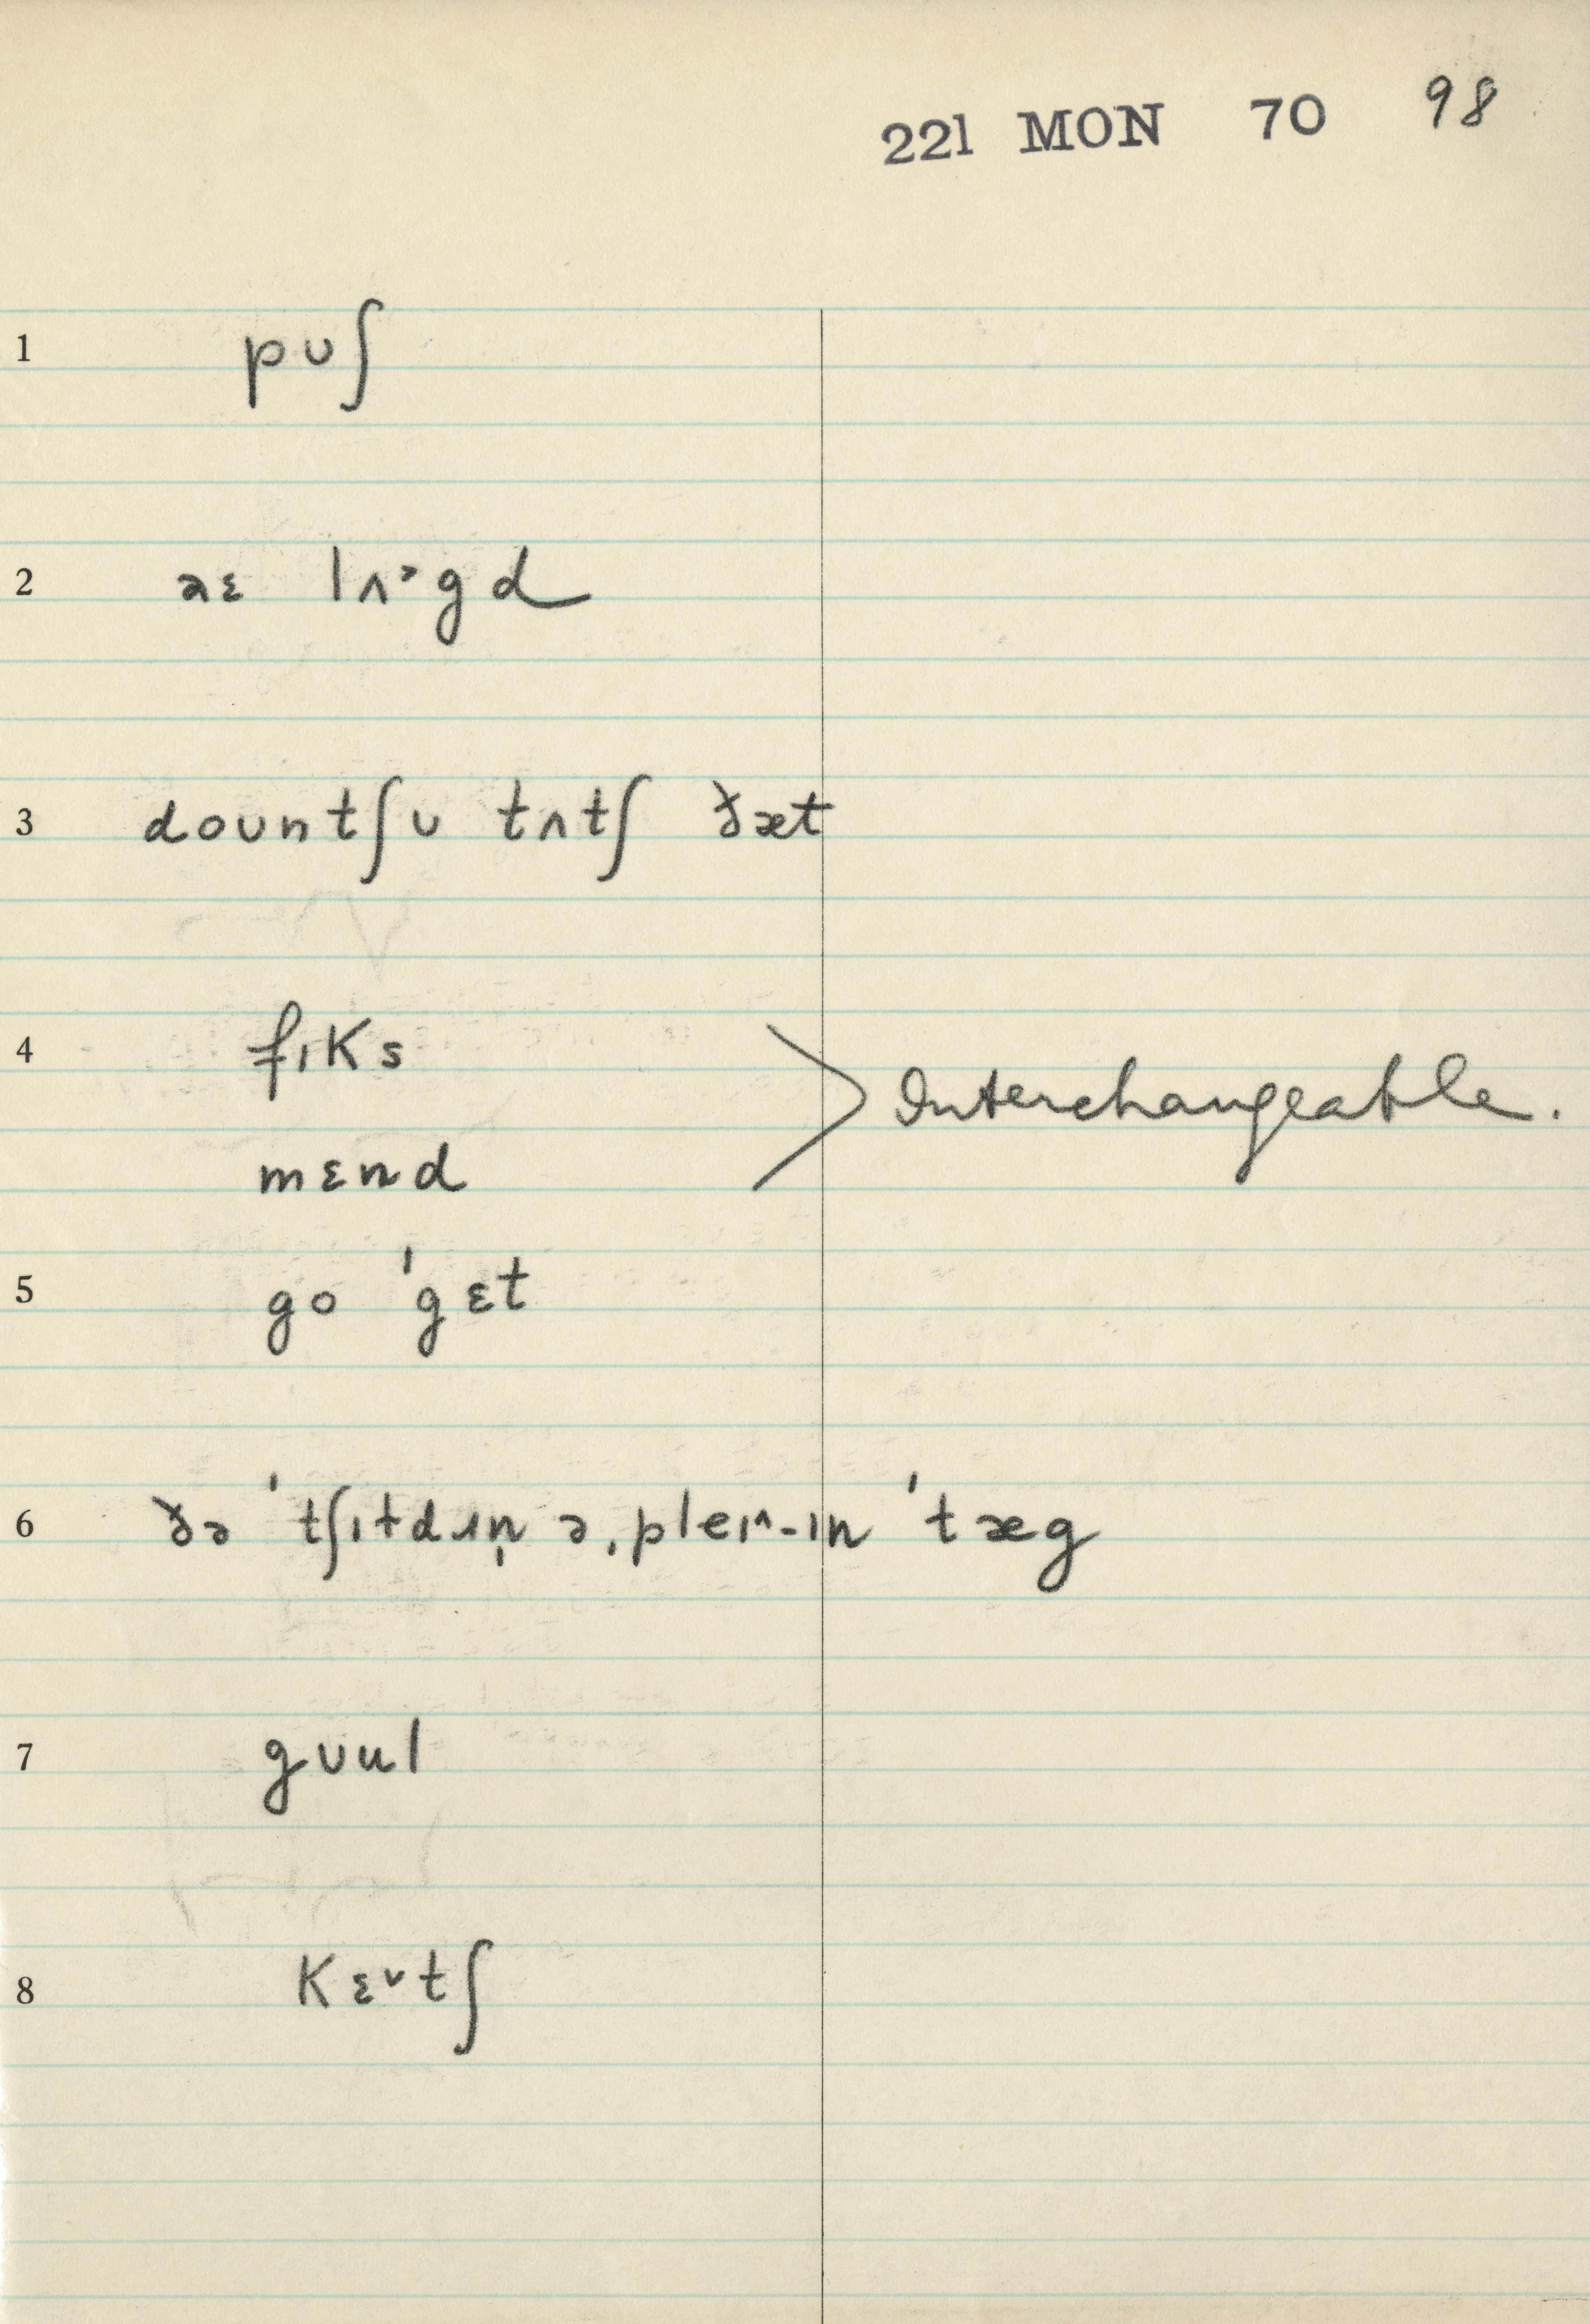 221 MON 70 98
1 pʊʃ
2 aɛ lʌᵊgd
3 doʊntʃʊ tʌtʃ ðæt
4 fɪks
Interchangeable.
mɛnd
5 go 'gɛt
6 ðə 'tʃɪtdɹn̩ ə ˌpleɪ^-ɪn 'tæg
7 gʊul
8 kɛᵛtʃ